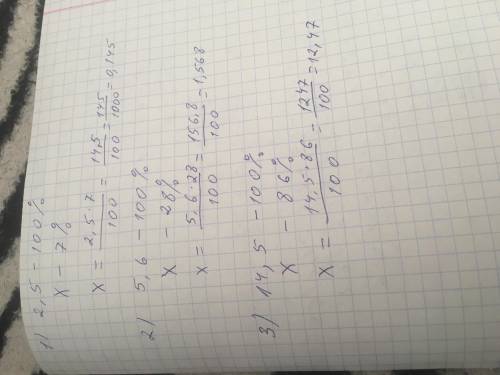 1) 2,5 - 100%
x - 7%
x = 2,5·7/100 = 14,5/100 = 145/1000 = 0,145
2) 5,6 - 100%
x - 28%
x = 5,6·28/100 = 156,8/100 = 1,568
3) 14,5 - 100%
x - 86%
x = 14,5·86/100 = 1247/100 = 12,47